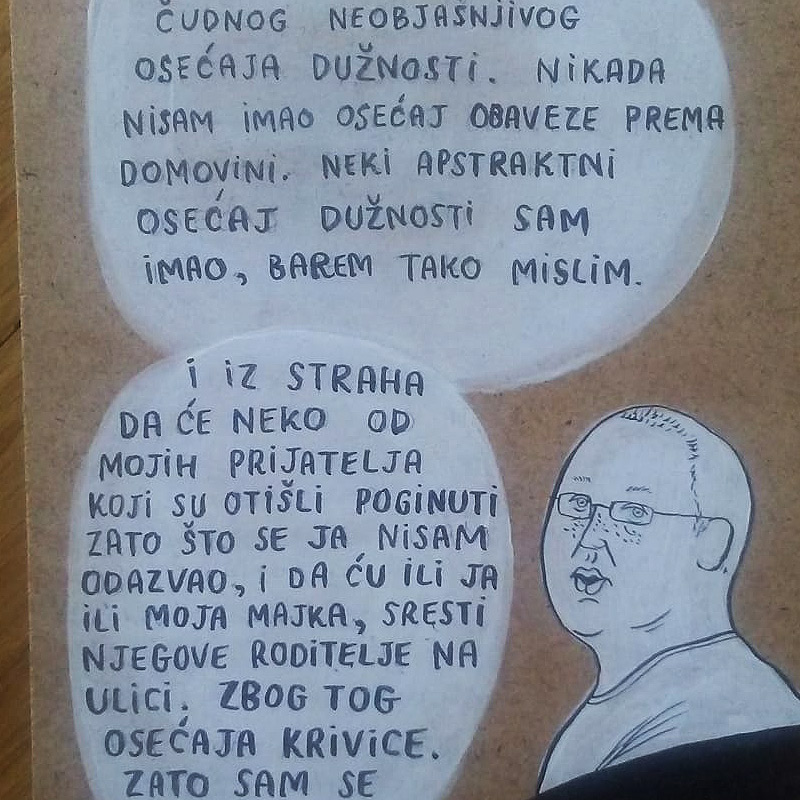 ČUDNOG NEOBJAŠNJIVOG
OSEĆAJA DUŽNOSTI. NIKADA
NISAM IMAO OSEĆAJ OBAVEZE PREMA
DOMOVINI. NEKI APSTRAKTNI
OSEĆAJ DUŽNOSTI SAM
IMAO, BAREM TAKO MISLIM.
I IZ STRAHA
DA ĆE NEKO OD
MOJIH PRIJATELJA
KOJI SU OTIŠLI POGINUTI
ZATO ŠTO SE JA NISAM
ODAZVAO, I DA ĆU ILI JA
ILI MOJA MAJKA, SRESTI
NJEGOVE RODITELJE NA
ULICI. ZBOG TOG
OSEĆAJA KRIVICE.
ZATO SAM SE